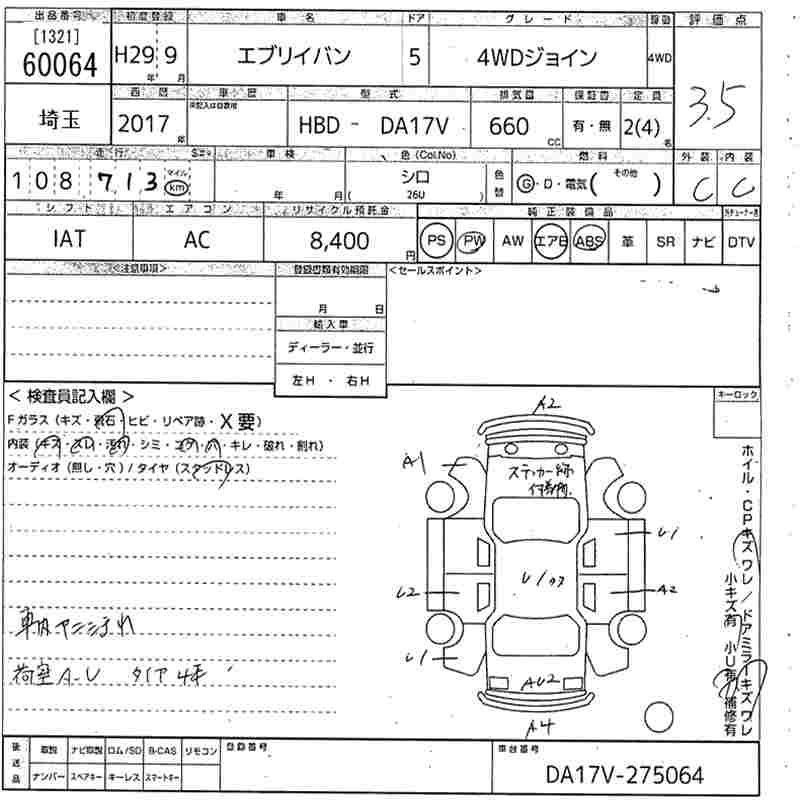 出品番号 初度登録 車名 ドア グレード 評価点
[1321]
60064 H29 9 エブリイバン 5 4WDジョイン 4WD 3.5
年 月
西暦 車歴 型式 排気量 保証書 定員
埼玉 2017 年 HBD - DA17V 660 cc 有・無 2(4) 名
走行 車検 色(Col.No) 燃料 外装 内装
108 713 マイル km 年 月 シロ 26U 色替 G・D・電気( その他 ) C C
シフト エアコン リサイクル預託金 純正装備品
IAT AC 8,400 円 PS PW AW エアB ABS 革 SR ナビ DTV
<注意事項> 登録書類有効期限 <セールスポイント>
月 日
輸入車
ディーラー・並行
左H・右H
<検査員記入欄> キーロック
Fガラス(キズ・飛石・ヒビ・リペア跡・X要)
内装(キズ・スレ・汚れ・シミ・コゲ・穴・キレ・破れ・割れ)
オーディオ(無し・穴)/タイヤ(スタッドレス)
A2
A1 ステッカー跡
U1
U1
U2 A2
U1
AU2
A4
荷室A-U タイヤ4本
ホイル・CPキズワレ/ドアミラーキズワレ
小キズ有 小U有 補修有
後送品 取説 ナビ取説 ロム/SD B-CAS リモコン 登録番号 車台番号
ナンバー スペアキー キーレス スマートキー DA17V-275064